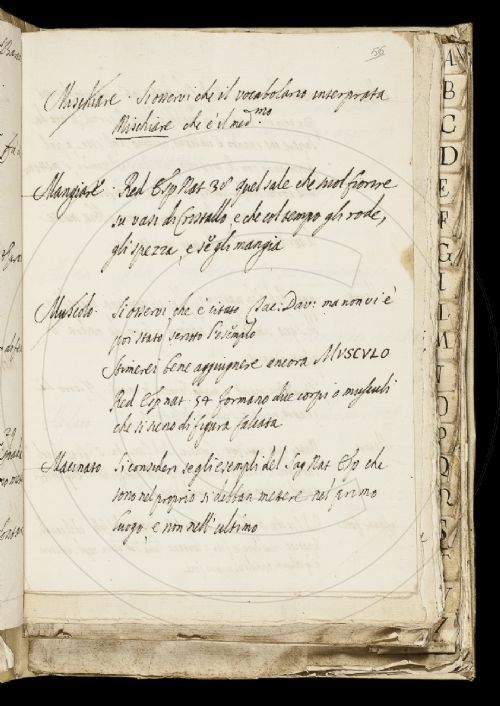 56
Mischiare. Si osservi che il vocabolario interpreta
Mischiare che è il med.mo
Mangiare. Red Esp Nat 38 quel sale che suol fiorire
su vasi di Cristallo, e che col tempo gli rode,
gli spezza, e se gli mangia
Muscolo. Si osservi che è citato Bac: Dav: ma non vi è
poi stato scritto l'esemplo
Stimerei bene aggiugnere ancora MUSCULO
Red Esp nat. 54 formano due corpi o musculi
che si sieno di figura falcata
Macinato Si consideri se gli esempli del Sag Nat Esp che
sono nel proprio si debban mettere nel primo
luogo, e non nell'ultimo
A
B
C
D
E
F
G
I
L
M
N
O
P
Q
R
S
V
Z